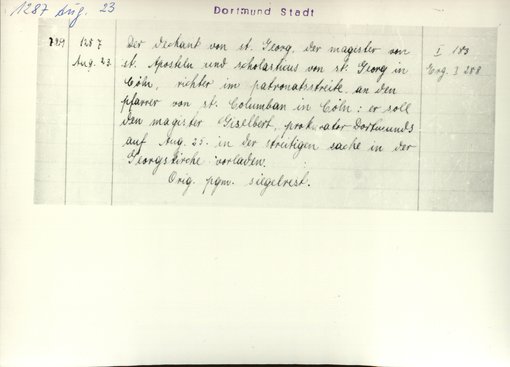 1287 Aug. 23
Dortmund Stadt
1287
Aug. 23
Der dechant von st. Georg, der magister von
st. Aposteln und scholasticus von st. Georg in
Cöln, richter im patronatsstreite, an den
pfarrer von st. Columban in Cöln: er soll
den magister Giselbert, prokurator Dortmunds
auf Aug. 25. in der streitigen sache in der
Georgskirche vorladen.
Orig. pgm. siegelrest.
I 183
Erg. I 288